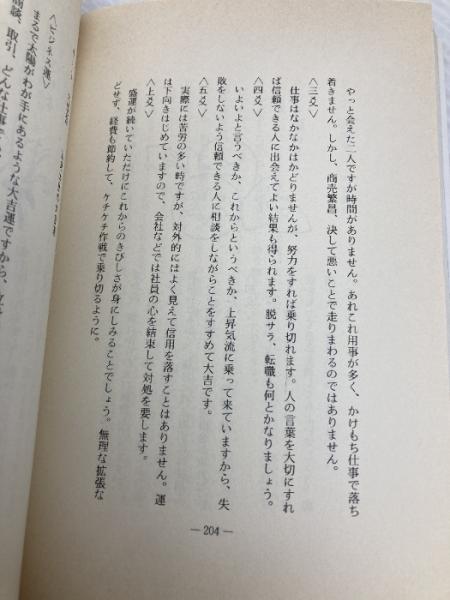 やっと会えた二人ですが時間がありません。あれこれ用事が多く、かけもち仕事で落ち
着きません。しかし、商売繁昌、決して悪いことで走りまわるのではありません。
〈三爻〉
仕事はなかなかはかどりませんが、努力をすれば乗り切れます。人の言葉を大切にすれ
ば信頼できる人に出会えてよい結果も得られます。脱サラ、転職も何とかなりましょう。
〈四爻〉
いよいよと言うべきか、これからというべきか、上昇気流に乗って来ていますから、失
敗をしないよう信頼できる人に相談をしながらことをすすめて大吉です。
〈五爻〉
実際には苦労の多い時ですが、対外的にはよく見えて信用を落すことはありません。運
は下向きはじめていますので、会社などでは社員の心を結束して対処を要します。
〈上爻〉
盛運が続いていただけにこれからのきびしさが身にしみることでしょう。無理な拡張な
どせず、経費も節約して、ケチケチ作戦で乗り切るように。
— 204 —
〈ビジネス運〉
まるで太陽がわが手にあるような大吉運ですから、
商談、取引、どんな仕事